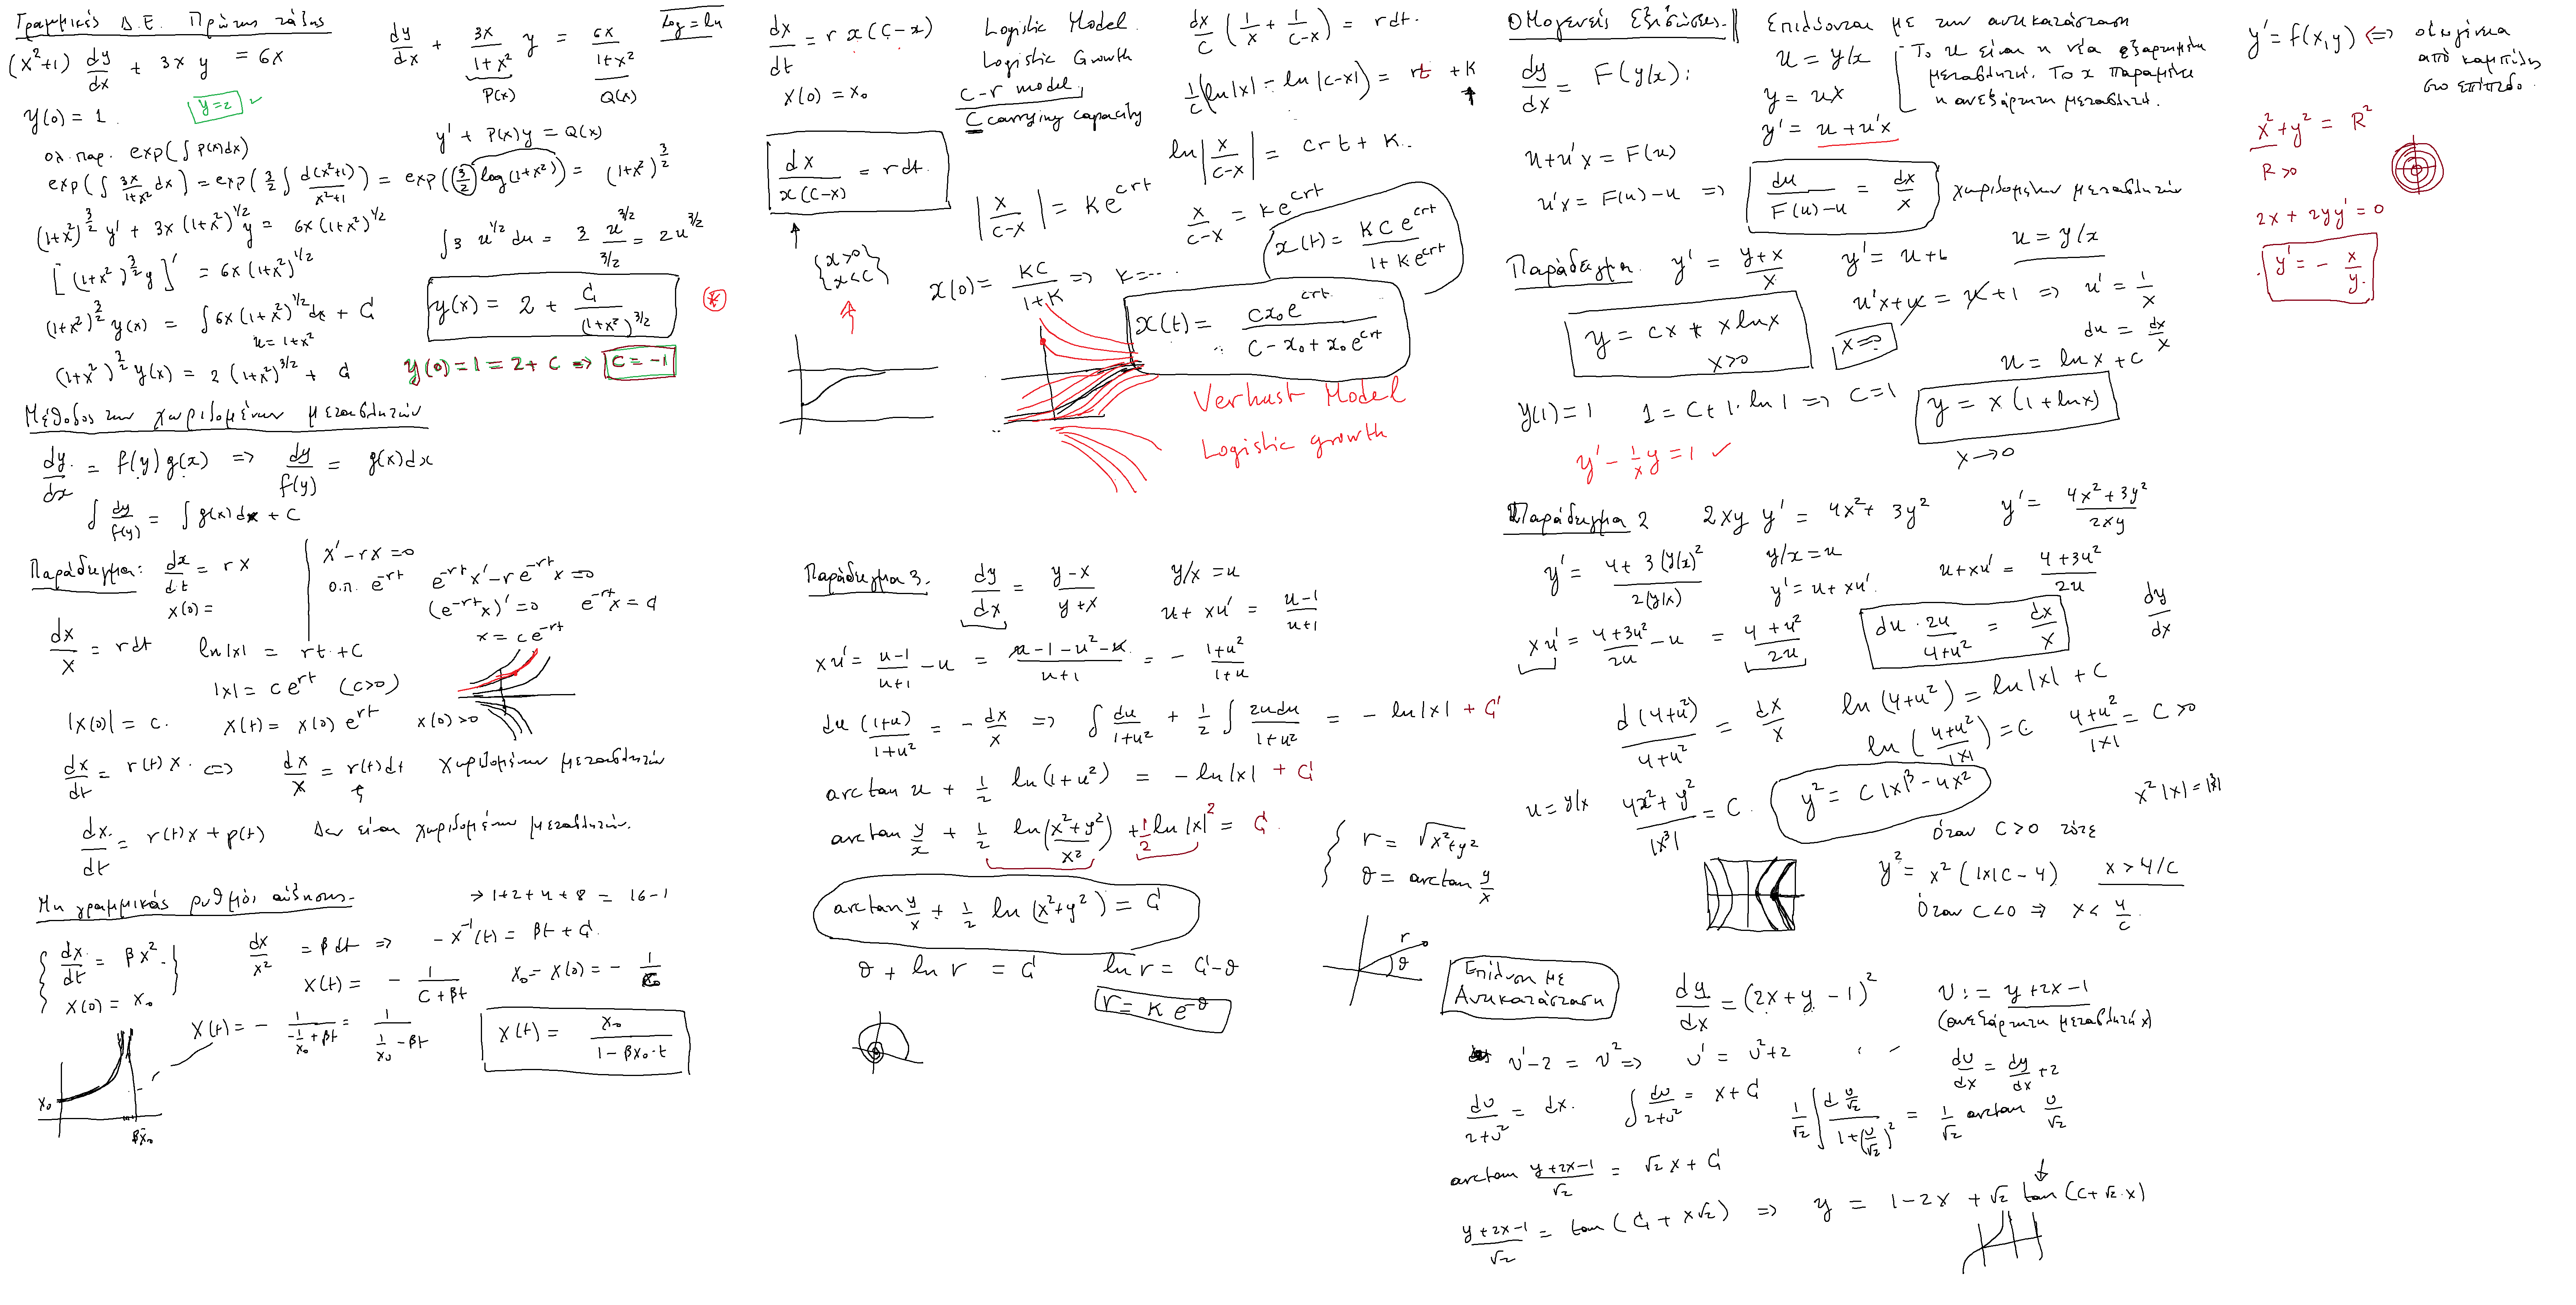 Γραμμικές Δ.Ε. Πρώτης τάξης
(x²+1) dy/dx + 3xy = 6x
y(0) = 1.
y=2 ✓
dy/dx + 3x/(1+x²) y = 6x/(1+x²)
P(x) Q(x)
log = ln
y' + P(x)y = Q(x)
ολ. παρ. exp(∫P(x)dx)
exp(∫ 3x/(1+x²) dx) = exp(3/2 ∫ d(x²+1)/(x²+1)) = exp((3/2) log(1+x²)) = (1+x²)^{3/2}
(1+x²)^{3/2} y' + 3x(1+x²)^{1/2} y = 6x(1+x²)^{1/2}
∫3 u^{1/2} du = 3 u^{3/2}/(3/2) = 2u^{3/2}
[(1+x²)^{3/2} y]' = 6x(1+x²)^{1/2}
(1+x²)^{3/2} y(x) = ∫6x(1+x²)^{1/2} dx + C
u = 1+x²
y(x) = 2 + C/(1+x²)^{3/2}
(1+x²)^{3/2} y(x) = 2(1+x²)^{3/2} + C
y(0) = 1 = 2 + C ⇒ C = -1
Μέθοδος των χωριζομένων μεταβλητών
dy/dx = f(y)g(x) ⇒ dy/f(y) = g(x)dx
∫ dy/f(y) = ∫g(x)dx + C
Παράδειγμα: dx/dt = rx
x(0) =
x' - rx = 0
ο.π. e^{-rt} e^{-rt}x' - re^{-rt}x = 0
(e^{-rt}x)' = 0 e^{-rt}x = C
x = ce^{-rt}
dx/x = rdt ln|x| = rt + C
|x| = ce^{rt} (C>0)
|x(0)| = c. x(t) = x(0)e^{rt} x(0)>0
dx/dt = r(t)x. ⇔ dx/x = r(t)dt χωριζομένων μεταβλητών
dx/dt = r(t)x + p(t) Δεν είναι χωριζομένων μεταβλητών.
Μη γραμμικός ρυθμός αύξησης.
→ 1+2+4+8 = 16-1
dx/dt = βx²
x(0) = x₀
dx/x² = βdt ⇒ -x^{-1}(t) = βt + C.
x(t) = - 1/(C+βt) x₀ = x(0) = - 1/C
x(t) = - 1/(-1/x₀ + βt) = 1/(1/x₀ - βt)
x(t) = x₀/(1-βx₀·t)
x₀
βx₀
dx/dt = r x(C-x)
x(0) = x₀
Logistic Model.
Logistic Growth
C-r model,
C carrying capacity
dx/(x(C-x)) = rdt.
{x>0
x<C}
dx/C (1/x + 1/(C-x)) = rdt.
1/C (ln|x| - ln|C-x|) = rt + K
ln|x/(C-x)| = Crt + K.
|x/(C-x)| = Ke^{Crt} x/(C-x) = Ke^{Crt}
x(t) = KCe^{Crt}/(1+Ke^{Crt})
x(0) = KC/(1+K) ⇒ K = ...
x(t) = Cx₀e^{Crt}/(C-x₀+x₀e^{Crt})
Verhust Model
Logistic growth
Παράδειγμα 3. dy/dx = (y-x)/(y+x) y/x = u
u + xu' = (u-1)/(u+1)
xu' = (u-1)/(u+1) - u = (u-1-u²-u)/(u+1) = - (1+u²)/(1+u)
du (1+u)/(1+u²) = - dx/x ⇒ ∫ du/(1+u²) + 1/2 ∫ 2udu/(1+u²) = -ln|x| + C
arctan u + 1/2 ln(1+u²) = -ln|x| + C
arctan y/x + 1/2 ln((x²+y²)/x²) + 1/2 ln|x|² = C.
arctan y/x + 1/2 ln(x²+y²) = C
{ r = √(x²+y²)
θ = arctan y/x
θ + ln r = C ln r = C-θ
r = Ke^{-θ}
r
θ
Ομογενείς Εξισώσεις.
Επιλύονται με την αντικατάσταση
dy/dx = F(y/x):
u = y/x
y = ux
y' = u + u'x
Το u είναι η νέα εξαρτημένη
μεταβλητή. Το x παραμένει
η ανεξάρτητη μεταβλητή.
u + u'x = F(u)
u'x = F(u)-u ⇒ du/(F(u)-u) = dx/x χωριζομένων μεταβλητών
Παράδειγμα. y' = (y+x)/x y' = u+1 u = y/x
u'x + u = u + 1 ⇒ u' = 1/x
du = dx/x
u = lnx + C
y = cx + xlnx
x>0
y(1) = 1 1 = C + 1·ln1 ⇒ C = 1
y = x(1+lnx)
x→0
y' - 1/x y = 1 ✓
Παράδειγμα 2 2xy y' = 4x² + 3y² y' = (4x²+3y²)/2xy
y' = (4+3(y/x)²)/2(y/x) y/x = u
y' = u + xu' u + xu' = (4+3u²)/2u
xu' = (4+3u²)/2u - u = (4+u²)/2u du·2u/(4+u²) = dx/x
dy/dx
d(4+u²)/(4+u²) = dx/x ln(4+u²) = ln|x| + C
ln((4+u²)/|x|) = C (4+u²)/|x| = C>0
u = y/x (4x²+y²)/|x³| = C. y² = C|x|³ - 4x²
x²|x| = |x³|
όταν C>0 τότε
y² = x²(|x|C-4) x>4/C
Όταν C<0 ⇒ x<4/C.
Επίλυση με
Αντικατάσταση
dy/dx = (2x+y-1)² υ := y+2x-1
(ανεξάρτητη μεταβλητή x)
υ'-2 = υ² ⇒ υ' = υ²+2
dυ/dx = dy/dx + 2
dυ/(2+υ²) = dx. ∫ dυ/(2+υ²) = x + C 1/√2 ∫ d(υ/√2)/(1+(υ/√2)²) = 1/√2 arctan υ/√2
arctan (y+2x-1)/√2 = √2 x + C
(y+2x-1)/√2 = tan(C + x√2) ⇒ y = 1-2x + √2 tan(C+√2·x)
y' = f(x,y) ⇔ οικογένεια
από καμπύλες
στο επίπεδο.
x² + y² = R²
R>0
2x + 2yy' = 0
y' = - x/y.